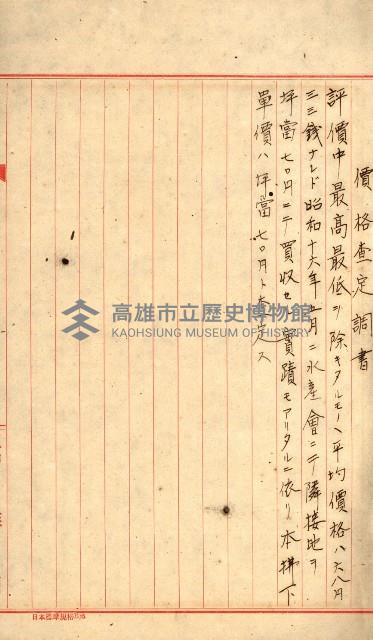 價格査定調書
評價中最高最低ヲ除キタルモノヽ平均價格ハ六八円
三三錢ナレド昭和十六年五月ニ水産會ニテ隣接地ヲ
坪當七〇円ニテ買収セル實蹟モアリタルニ依リ本拂下
單價ハ坪當七〇円ト査定ス
高雄市立歷史博物館
KAOHSIUNG MUSEUM OF HISTORY
日本標準規格